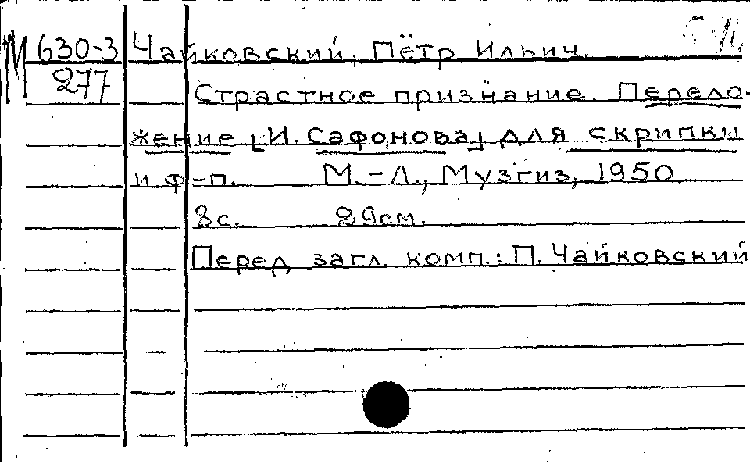 М 630-3 Чайковский, Пётр Ильич.
277 Страстное признание. Перело-
жение [И. Сафонова] для скрипки
и ф-п. М.-Л., Музгиз, 1950
8с. 29см.
Перед загл. комп.: П. Чайковский